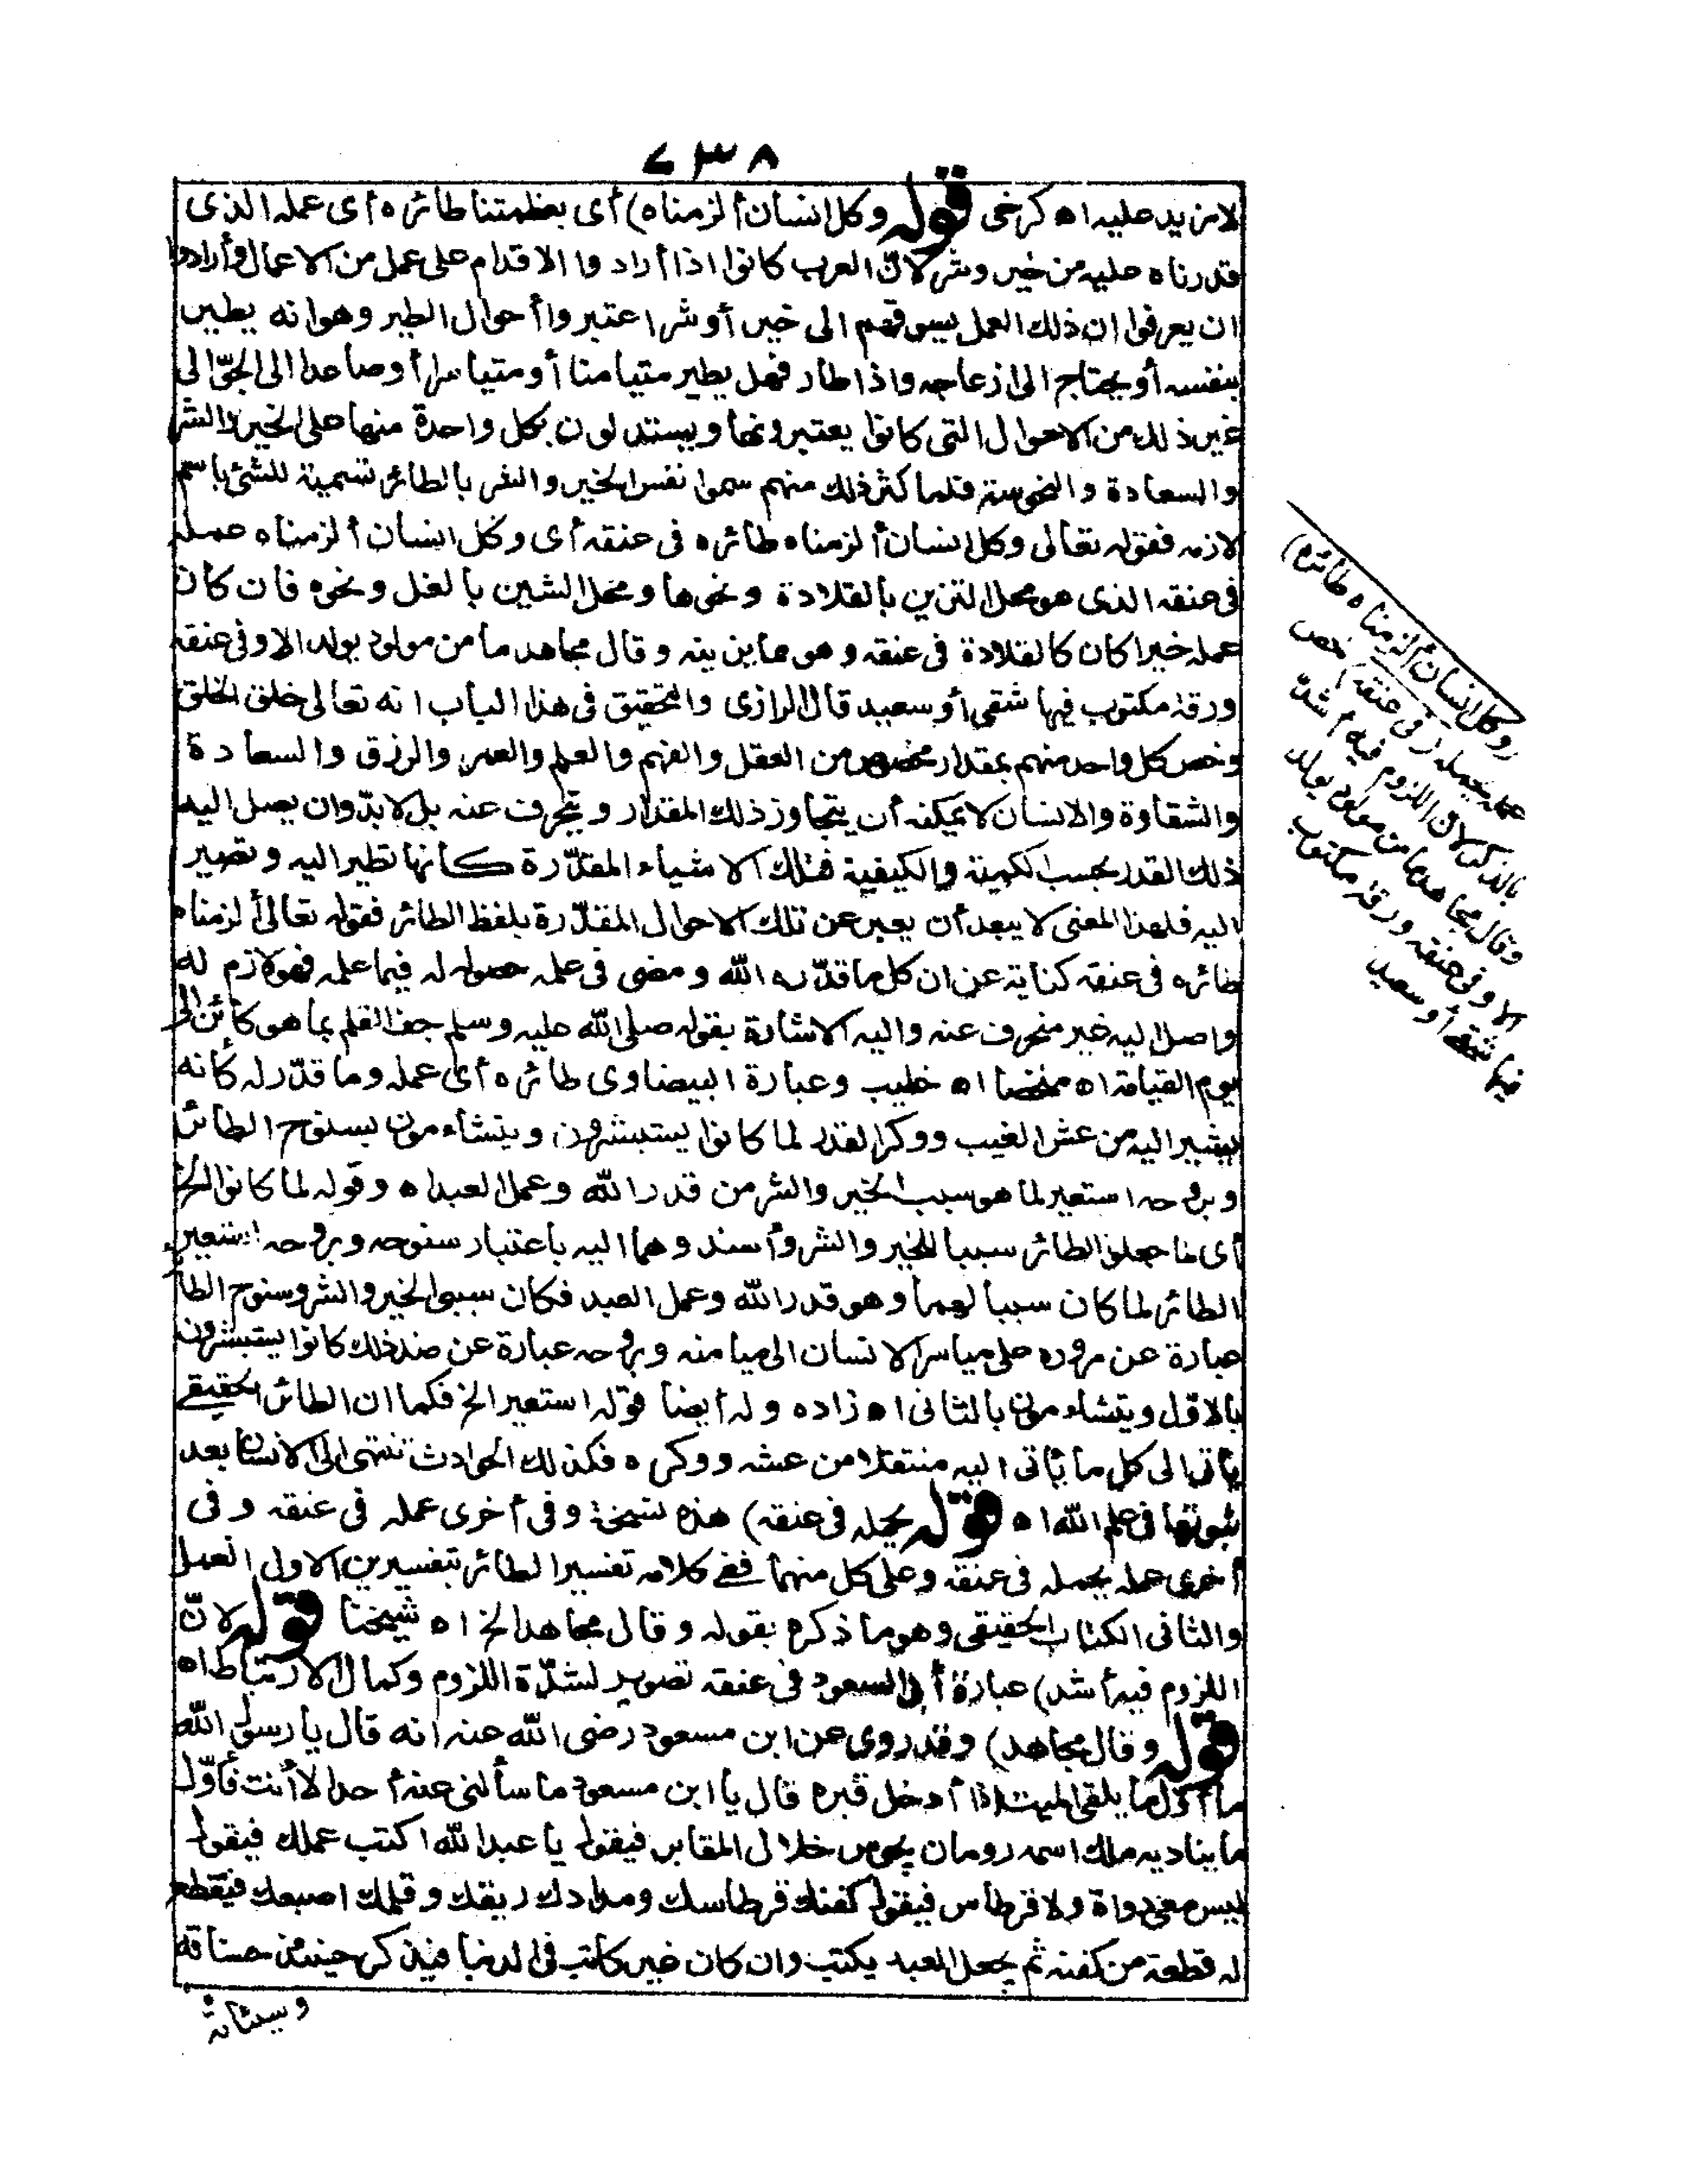 ٦٣٨
لا مزيد عليه اه كرخى قوله وكل انسان ألزمناه) أى بعظمتنا طائره أى عمله الذى
قدرناه عليه من خير وشر لانّ العرب كانوا اذا أراد وا الاقدام على عمل من الاعمال وأرادوا
ان يعرفوا ان ذلك العمل يسوقهم الى خير أو شر اعتبروا أحوال الطير وهو انه يطير
بنفسه أو يحتاج الى ازعاجه واذا طار فهل يطير متيامنا أو متياسرا أو صاعدا الى الجوّ الى
غير ذلك من الاحوال التى كانوا يعتبرونها ويستدلون بكل واحدة منها على الخير والشر
والسعادة والنحوسة فلما كثر ذلك منهم سموا نفس الخير والشر بالطائر تسمية للشئ باسم
لازمه فقوله تعالى وكل انسان ألزمناه طائره فى عنقه أى وكل انسان ألزمناه عمله
فى عنقه الذى هو محل التزين بالقلادة ونحوها ومحل الشين بالغل ونحوه فان كان
عمله خيرا كان كالقلادة فى عنقه وهو مما يزينه وقال مجاهد ما من مولود يولد الا وفى عنقه
ورقة مكتوب فيها شقى أو سعيد قال الرازى والتحقيق فى هذا الباب انه تعالى خلق الخلق
وخص كل واحد منهم بمقدار مخصوص من العقل والفهم والعلم والعمر والرزق والسعادة
والشقاوة والانسان لا يمكنه أن يتجاوز ذلك المقدار وينحرف عنه بل لا بدّ وان يصل اليه
ذلك القدر بحسب الكمية والكيفية فتلك الاشياء المقدّرة كأنها تطير اليه وتصير
اليه فلهذا المعنى لا يبعد أن يعبر عن تلك الاحوال المقدّرة بلفظ الطائر فقوله تعالى ألزمناه
طائره فى عنقه كناية عن ان كل ما قدّره الله ومضى فى علمه حصوله له فيما علمه فهو لازم له
واصل اليه غير منحرف عنه واليه الاشارة بقوله صلى الله عليه وسلم جف القلم بما هو كائن الى
يوم القيامة اه ملخصا اه خطيب وعبارة البيضاوى طائره أى عمله وما قدّر له كأنه
يشير اليه من عش الغيب ووكر القدر لما كانوا يستبشرون ويتشاءمون بسنوح الطائر
وبروحه استعير لما هو سبب الخير والشر من قدر الله وعمل العبد اه وقوله لما كانوا الخ
أى لما جعلوا الطائر سببا للخير والشر وأسندوهما اليه باعتبار سنوحه وبروحه استعير
الطائر لما كان سببا لهما وهو قدر الله وعمل العبد فكان سببى الخير والشر وسنوح الطائر
عبارة عن مروره على مياسر الانسان الى ميامنه وبروحه عبارة عن ضد ذلك كانوا يستبشرون
بالاوّل ويتشاءمون بالثانى اه زاده وله أيضا قوله استعير الخ فكما ان الطائر الحقيقى
يأتى الى كل ما يأتى اليه منتقلا من عشه ووكره فكذلك الحوادث تنتهى الى الانسان بعد
ثبوتها فى علم الله اه قوله يحمله فى عنقه) هذه نسخة وفى أخرى عمله فى عنقه وفى
أخرى عمله يحمله فى عنقه وعلى كل منهما ففى كلامه تفسير الطائر بتفسيرين الاولى العمل
والثانى الكتاب الحقيقى وهو ما ذكره بقوله وقال مجاهد الخ اه شيخنا قوله لانّ
اللزوم فيه أشد) عبارة أبى السعود فى عنقه تصوير لشدّة اللزوم وكمال الارتباط اه
قوله وقال مجاهد) وقد روى عن ابن مسعود رضى الله عنه انه قال يا رسول الله
ما أوّل ما يلقى الميت اذا أدخل قبره قال يا ابن مسعود ما سألنى عنه أحد الا أنت فأوّل
ما يناديه ملك اسمه رومان يجوس خلال المقابر فيقول يا عبد الله اكتب عملك فيقول
ليس معى دواة ولا قرطاس فيقول كفنك قرطاسك ومدادك ريقك وقلمك اصبعك فيقطع
له قطعة من كفنه ثم يجعل العبد يكتب وان كان غير كاتب فى الدنيا فيذكر حينئذ حسناته
وسيئاته
(وكل انسان ألزمناه طائره)
عمله يحمله (فى عنقه) خص
بالذكر لان اللزوم فيه أشد
وقال مجاهد ما من مولود يولد
الا وفى عنقه ورقة مكتوب
فيها شقى أو سعيد